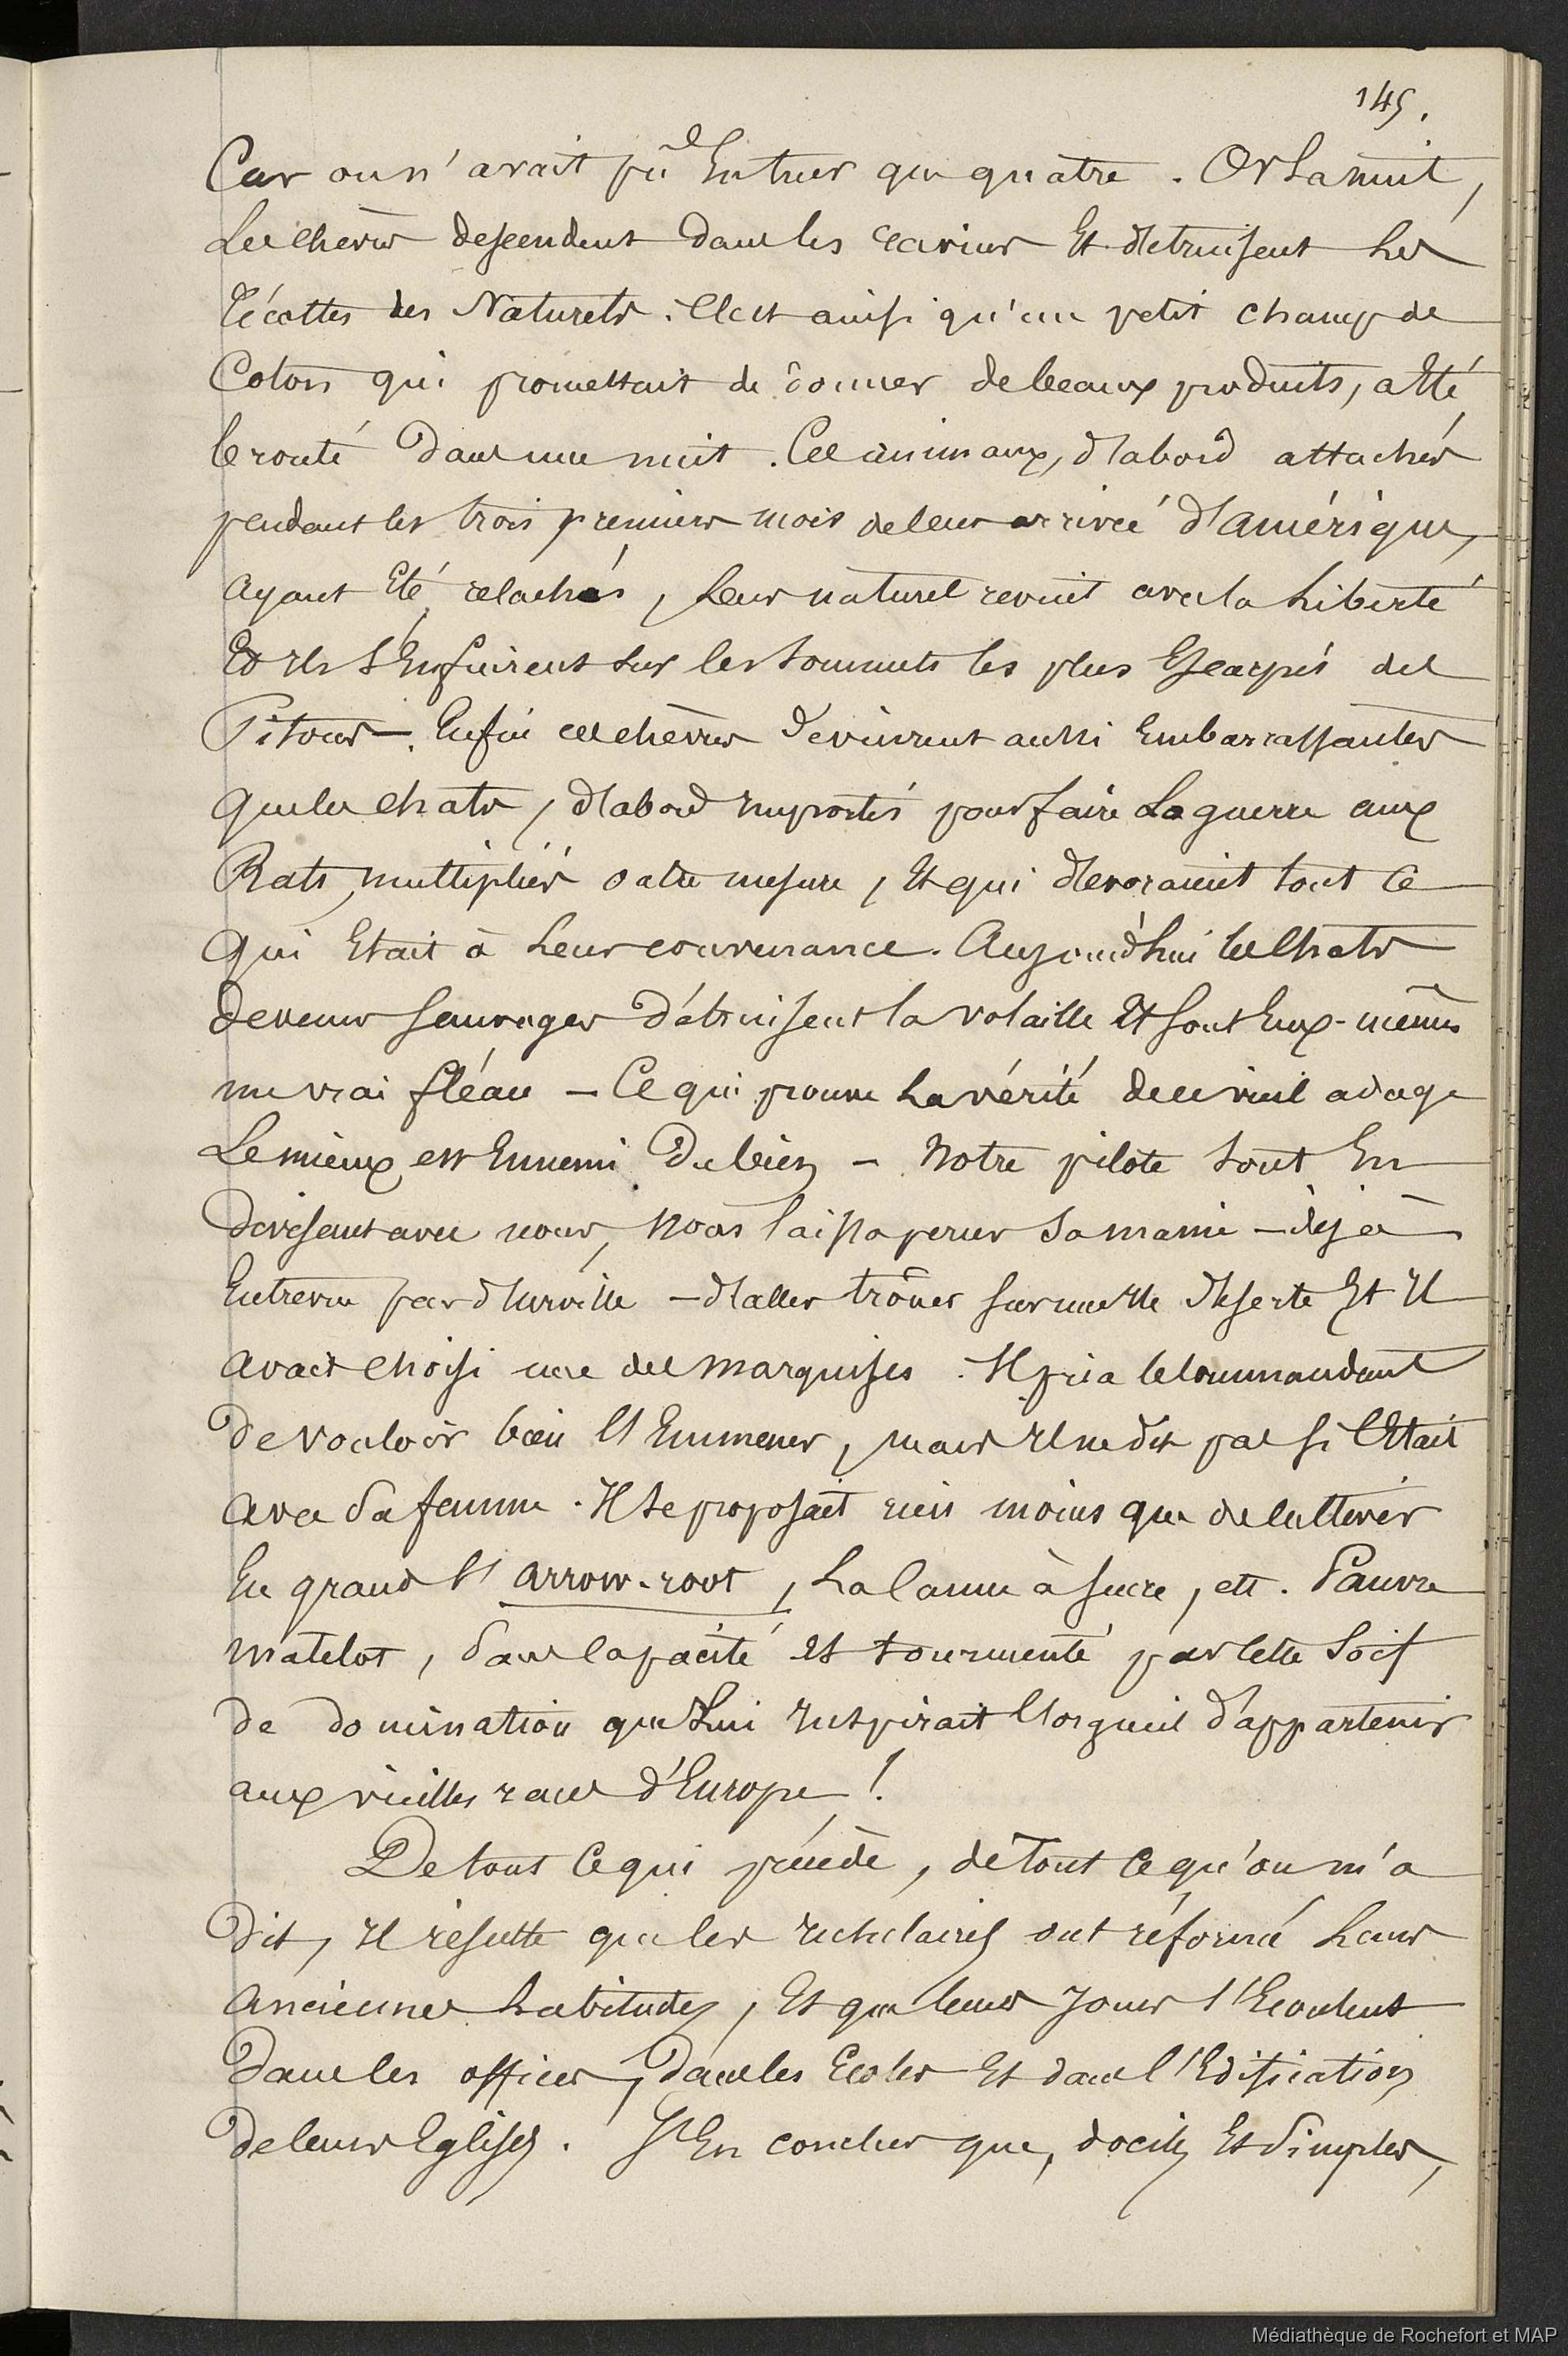 145.
Car on n'avait pû En tuer que quatre. Or La nuit,
Les chèvres descendent dans les ravins Et détruisent Les
Récoltes des Naturels. C'est ainsi qu'un petit champ de
Coton qui promettait de donner de beaux produits, a Eté
brouté dans une nuit. Ces animaux, d'abord attachés
pendant les trois premiers mois de leur arrivée d'amérique,
ayant Eté relachés, Leur naturel revint avec la Liberté
Et Ils s'Enfuirent sur les sommets les plus Escarpés des
Pitons. Enfin ces chèvres devinrent aussi Embarrassantes
que les chats, d'abord Importés pour faire La guerre aux
Rats, multipliés outre mesure, Et qui dévoraient tout ce
qui Etait à Leur convenance. Aujourd'hui les Chats
devenus sauvages détruisent la volaille Et sont Eux-mêmes
un vrai fléau — Ce qui prouve La vérité de ce vieil adage
Le mieux est Ennemi du bien — Notre pilote tout En
devisant avec nous, Nous laissa percer sa manie — déjà
Entrevue par d'Urville — d'aller trôner sur une Ile déserte Et Il
avait choisi une des marquises. Il pria le Commandant
de vouloir bien l'Emmener, mais Il ne dit pas si C'Etait
avec sa femme. Il se proposait rien moins que de cultiver
En grand l'arrow-root, La Canne à sucre, ett. Pauvre
matelot, sans capacité et tourmenté par cette Soif
de domination que Lui Inspirait l'orgueil d'appartenir
aux vieilles races d'Europe!
De tout ce qui précède, de Tout ce qu'on m'a
Dit, Il résulte que les Insulaires ont réformé Leurs
anciennes habitudes, Et que leurs jours s'Ecoulent
Dans les offices, dans les Ecoles Et dans l'Edification
de leurs Eglises. J'En conclus que, dociles Et Simples,
Médiathèque de Rochefort et MAP